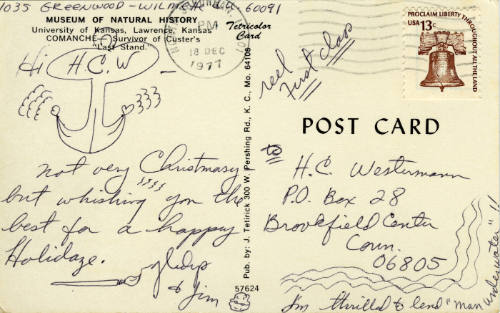 1035 GREENWOOD - WILMETTE 60091
MUSEUM OF NATURAL HISTORY
University of Kansas, Lawrence, Kansas
COMANCHE - Survivor of Custer's
"Last Stand"
Tetricolor
Card
PM
18 DEC
1977
Hi H.C.W
not very Christmasy
but whishing you the
best for a happy
Holidaze.
gladys
& Jim
Pub. by: J. Tetirick 300 W. Pershing Rd., K. C., Mo. 64108
57624
PROCLAIM LIBERTY THROUGHOUT ALL THE LAND
USA 13c
reel
First Class
POST CARD
to
H.C. Westermann
P.O. Box 28
Brookfield Center
Conn.
06805
I'm thrilled to lend "Man underwater"!!